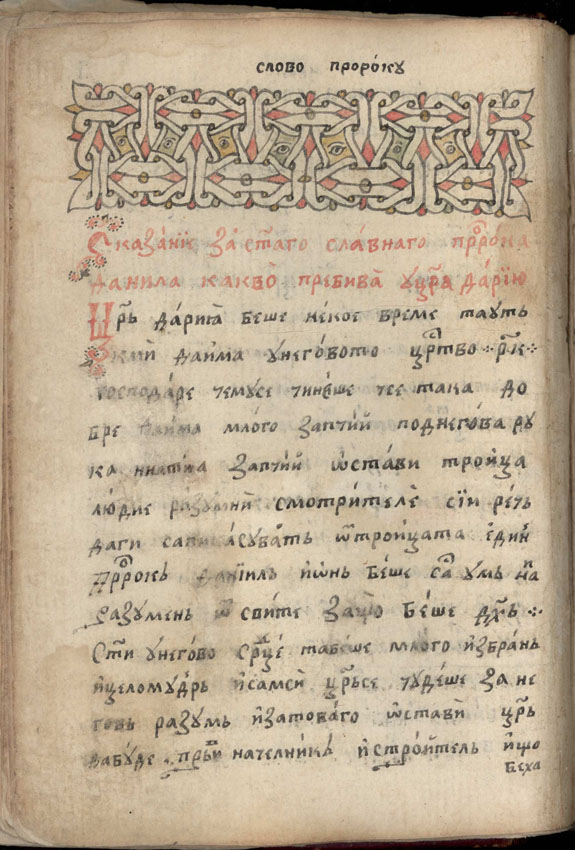 слово проро́ку
Сказа́нїе за́ ст҃аго сла́внаго прⷪ҇ро́ка
данила какво̀ пребива̀ у цр҃ꙗ да́рїю
Цр҃ь да́риѧ бе́ше не́кое време таутъ
господа́ре чему се чине́ше че є така до
бре има мло́го запти́й под него́ва ру
ка на тиѧ запти́й ѡста́ви трои́ца
лю́дие разумни́ смотри́теле сїи ре́чь
да ги сапикасува́тъ ѿ трои́цата еди́нъ
прⷪ҇ро́къ данїилъ и ѡ́нь бе́ше са́ умъ на
разуменъ ѿ сви́те защо̀ бе́ше дх҃ъ
ст҃и у него́во ср҃це́ та бе́ше мло́го и҆збранъ
и҆ целому́дръ и҆ са́мси цр҃ь се чу́деше за не
говъ ра́зумъ и҆ за това́го ѡста́ви цр҃ь
да бу́де пръ́ви наче́лникъ и҆ строи́тель и҆ що
беха